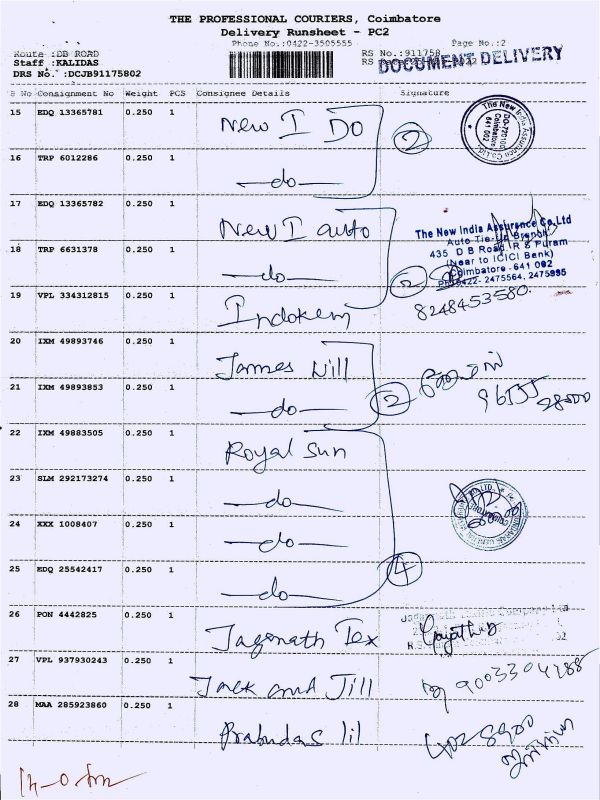 THE PROFESSIONAL COURIERS, Coimbatore
Delivery Runsheet - PC2
Phone No.:0422-3505555 Page No.:2
Route :DB ROAD RS No.:911758
Staff :KALIDAS RS
DOCUMENT DELIVERY
DRS No. :DCJB91175802
S No Consignment No Weight PCS Consignee Details Signature
15 EDQ 13365781 0.250 1 New I DO
2
The New India Assurance Co.Ltd.
DO-720100
Coimbatore
641 002
16 TRP 6012286 0.250 1 -do-
17 EDQ 13365782 0.250 1 New I auto
The New India Assurance Co.Ltd
Auto Tie-Up Branch
435 D B Road, R S Puram
(Near to ICICI Bank)
Coimbatore - 641 002
PH:0422- 2475564, 2475995
18 TRP 6631378 0.250 1 -do-
2
19 VPL 334312815 0.250 1 Indokem
8248453580
20 IXM 49893746 0.250 1 James Will
21 IXM 49893853 0.250 1 -do-
2
22 IXM 49883505 0.250 1 Royal Sun
23 SLM 292173274 0.250 1 -do-
24 XXX 1008407 0.250 1 -do-
25 EDQ 25542417 0.250 1 -do-
4
26 PON 4442825 0.250 1 Jagenath Tex
27 VPL 937930243 0.250 1 Jack and Jill
9003304288
28 MAA 285923860 0.250 1 Prabudas lil